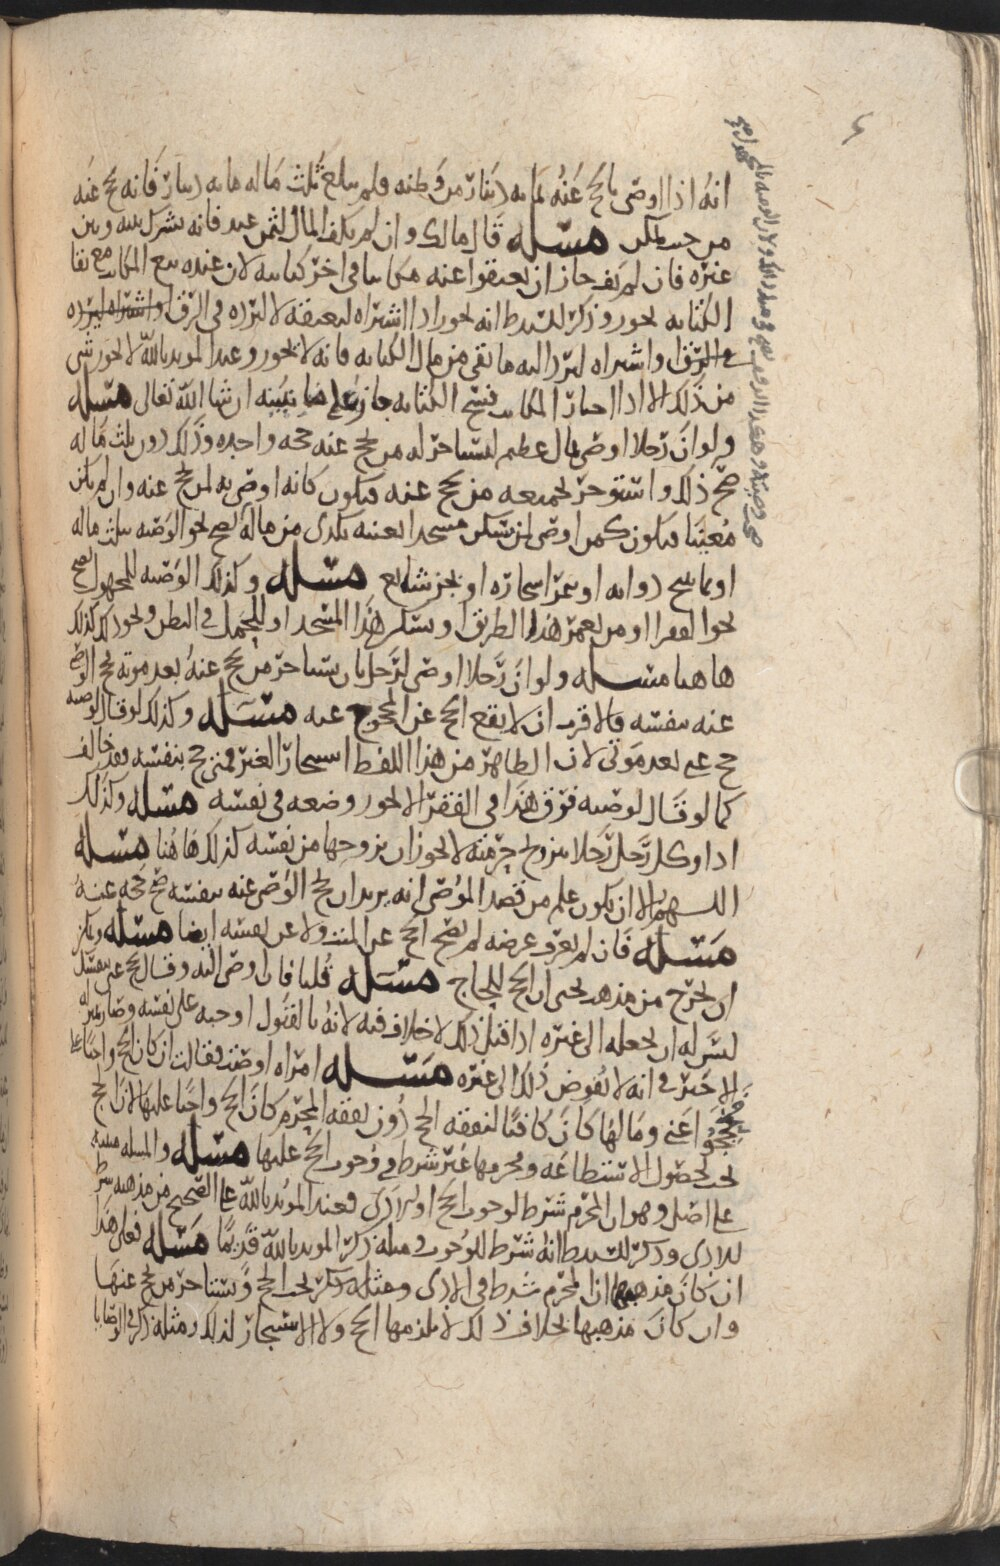 انه اذا اوصى بالحج عنه بمايه دينار من وطنه فلم يبلغ ثلث ماله مايه دينار فانه يحج عنه
من حيث يمكن مسله قال مالك وان لم يكف المال لثمن عبد فانه يشرك بينه وبين
غيره فان لم يف جاز ان يعينوا عنه مكاتبا في اخر كتابته لان عنده بيع المكاتب مع بقا
الكتابه يجوز وذكر انه يجوز اذا اشتراه ليعتقه لا ليرده في الرق واشتراه ليرده
في الرق واشتراه ليرد اليه ما بقي من مال الكتابه فانه لا يجوز وعند المويد بالله لا يجوز شي
من ذلك الا اذا اختار المكاتب فسخ الكتابه جاز على ما نبينه ان شا الله تعالى مسله
ولو ان رجلا اوصى بمال عظيم ليستاجر له من يحج عنه حجه واحده وذلك دون ثلث ماله
صح ذلك واستوجر بجميعه من يحج عنه فيكون كانه اوصى به لمن يحج عنه وان لم يكن
معينا فيكون كمن اوصى لمن سكن مسجدا بعينه بكذى من ماله يصح نحو الوصيه بثلث ماله
او بما دوابه او بثمر اشجاره او بجز شايع مسله وكذلك الوصيه للمجهول يصح
نحو الفقرا او من يعمر هذا الطريق او يسكن هذا المسجد او للحمل في البطن ونحو ذلك كذلك
هاهنا مسله ولو ان رجلا اوصى لرجل بان يستاجر من يحج عنه بعد موته فحج الوصي
عنه بنفسه فالاقرب ان لا يقع الحج عن المحجوج عنه مسله وكذلك لو قال لوصيه
حج عني بعد موتي لان الظاهر من هذا اللفظ استيجار الغير فمن حج بنفسه فقد خالف
كما لو قال لوصيه فرق هذا في الفقرا لا يجوز وضعه في نفسه مسله وكذلك
اذا وكل رجل رجلا بتزويج حرمته لا يجوز ان يزوجها من نفسه كذلك هاهنا مسله
اللهم الا ان يكون علم من قصد الموصي انه يريد ان يحج الوصي عنه بنفسه صح حجه عنه
مسله فان لم يعرف غرضه لم يصح الحج عن الميت ولا عن نفسه ايضا مسله ويمكن
ان يخرج من مذهب يحيى ان الحج للحاج مسله قلنا فان اوصى اليه وقال حج عني بنفسك
ليس له ان يجعله الى غيره اذا قبل ذلك لا خلاف فيه لانه بالقبول اوجبه على نفسه وصار بمنزله
الاجير في انه لا يفوض ذلك الى غيره مسله امراه اوصت فقالت ان كان الحج واجبا علي
فحججوا عني ومالها كان كافيا لنفقه الحج دون نفقه المحرم كان الحج واجبا عليها لان الحج
يجب بحصول الاستطاعه ومحرمها غير شرط في وجوب الحج عليها مسله والمسله مبنيه
على اصل وهو ان المحرم شرط لوجوب الحج او للاداى فعند المويد بالله على الصحيح من مذهبه شرط
للادى وذكر انه شرط للوجوب ومثله ذكر المويد بالله قديما مسله فعلى هذا
ان كان مذهبها ان المحرم شرط في الادى ومثله ذكر يجب الحج ويستاجر من يحج عنها
وان كان مذهبها بخلاف ذلك لا يلزمها الحج ولا الاستيجار لذلك ومثله ذكر في الوصايا